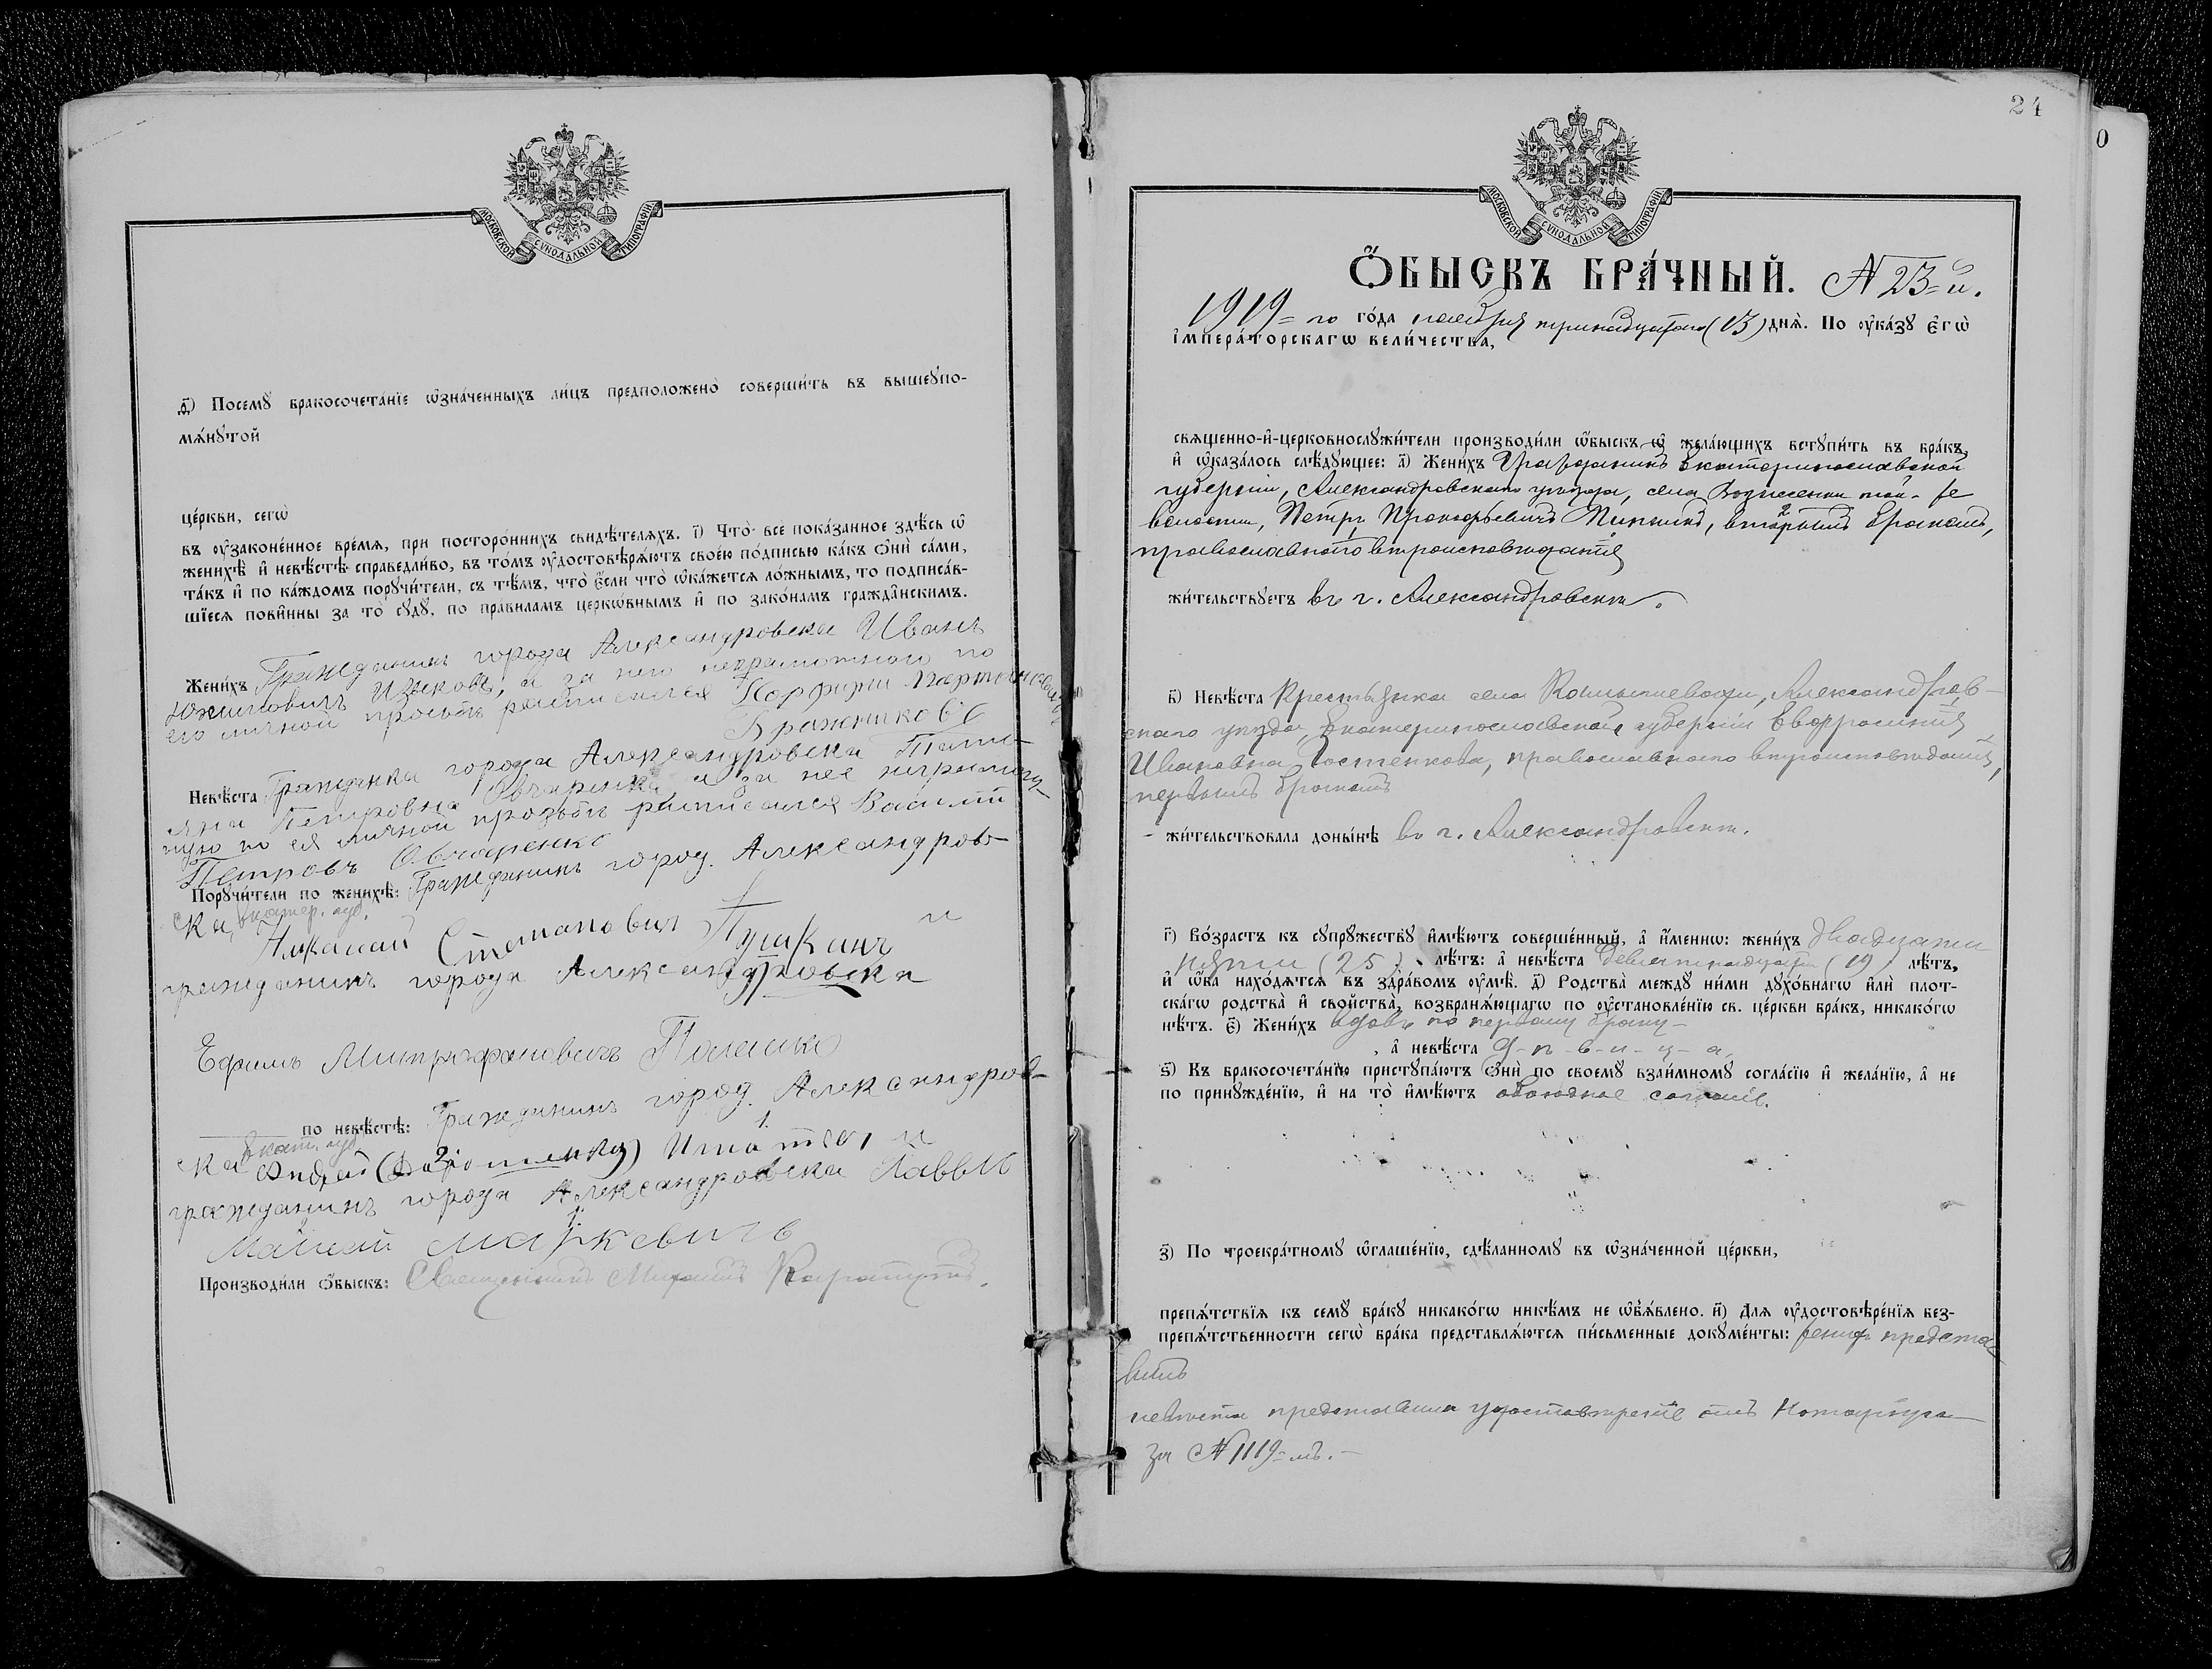 МОСКОВСКОЙ СѴНОДАЛЬНОЙ ТИПОГРАФІИ
д҃) Посемꙋ бракосочета́нїе ѡ҆зна́ченныхъ ли́цъ предположено̀ соверши́ть въ вышеꙋпо-
мѧ́нꙋтой
це́ркви, сегѡ̀
въ ᲂу҆зако́ненное вре́мѧ, при посторо́ннихъ свидѣ́телѧхъ. і҃) Что̀ всѐ пока́занное здѣ́сь ѡ҆
женихѣ̀ и҆ невѣ́стѣ справедли́во, въ то́мъ ᲂу҆достовѣрѧ́ютъ свое́ю по́дписью ка́къ ѻ҆нѝ са́ми,
та́къ и҆ по ка́ждомъ порꙋчи́тели, съ тѣ́мъ, что̀ є҆́сли что̀ ѡ҆ка́жетсѧ ло́жнымъ, то подписа́в-
шїесѧ пови́нны за то̀ сꙋдꙋ̀, по пра́виламъ церкѡ́внымъ и҆ по зако́намъ гражда́нскимъ.
Жени́хъ Гражданинъ города Александровска Иванъ
Изъековъ, а за него неграмотнаго по
его личной просьбѣ росписался Порфирий
Бражниковъ
Невѣ́ста Гражданка города Александровска Тати-
яна Петровна Овчаренко а за нее неграмот-
ную по ея личной прозьбѣ росписался Василий
Петровъ Овчаренко
Порꙋчи́тели по женихѣ̀: Гражданинъ город. Александров-
ска, Екатер. губ.
Николай Степановичъ Пушкинъ и
гражданинъ города Александровска
Ефимъ Митрофановичъ
по невѣ́стѣ: Гражданинъ город. Александров-
ска Екат. губ.
Игнатов и
гражданинъ города Александровска Павелъ
Маркевичъ
Производи́ли ѻ҆́быскъ: Священникъ Михаилъ
24
0
МОСКОВСКОЙ СѴНОДАЛЬНОЙ ТИПОГРАФІИ
Ѻ҆́БЫСКЪ БРА́ЧНЫЙ. N 23-й.
1919-го го́да ноября тринадцатаго (13) днѧ̀. По ᲂу҆ка́зꙋ є҆гѡ̀
і҆мпера́торскагѡ вели́чества,
свѧще́нно-и҆-церковнослꙋжи́тели производи́ли ѻ҆́быскъ ѡ҆ жела́ющихъ встꙋпи́ть въ бра́къ,
и҆ ѡ҆каза́лось слѣ́дꙋющее: а҃) Жени́хъ Гражданинъ Екатеринославской
губерніи, Александровскаго уѣзда, села Вознесенки той-же
волости, Петръ Прокофьевичъ Пипкинъ, вторымъ бракомъ,
православнаго вѣроисповѣданія
жи́тельствꙋетъ въ г. Александровскѣ.
в҃) Невѣ́ста Крестьянка села Камышевахи, Александров-
скаго уѣзда, Екатеринославской губерніи Евфросинія
Ивановна Костенкова, православнаго вѣроисповѣданія,
первымъ бракомъ
- жи́тельствовала доны́нѣ въ г. Александровскѣ.
г҃) Во́зрастъ къ сꙋпрꙋ́жествꙋ и҆мѣ́ютъ соверше́нный, а҆ и҆́меннѡ: жени́хъ двадцати
пяти (25) лѣ́тъ: а҆ невѣ́ста девятнадцати (19) лѣ́тъ,
и҆ ѻ҆́ба нахо́дѧтсѧ въ здра́вомъ ᲂу҆мѣ̀. д҃) Родства̀ междꙋ ни́ми дꙋхо́внагѡ и҆лѝ плот-
ска́гѡ родства̀ и҆ свойства̀, возбранѧ́ющагѡ по ᲂу҆становле́нїю св. це́ркви бра́къ, никако́гѡ
нѣ́тъ. є҃) Жени́хъ вдовъ по первому браку -
, а҆ невѣ́ста д-ѣ-в-и-ц-а.
ѕ҃) Къ бракосочета́нїю пристꙋпа́ютъ ѻ҆нѝ по своемꙋ̀ взаи́мномꙋ согла́сїю и҆ жела́нїю, а҆ не
по принꙋжде́нїю, и҆ на то̀ и҆мѣ́ютъ обоюдное согласіе.
з҃) По троекра́тномꙋ ѡ҆глаше́нїю, сдѣ́ланномꙋ въ ѡ҆зна́ченной це́ркви,
препѧ́тствїѧ къ семꙋ̀ бра́кꙋ никако́гѡ никѣ́мъ не ѡ҆б̾ѧ́влено. и҃) Длѧ ᲂу҆достовѣре́нїѧ без-
препѧ́тственности сегѡ̀ бра́ка представлѧ́ютсѧ пи́сьменные докꙋме́нты: женихъ предста-
вилъ
невѣста представила удостовѣреніе отъ Нотаріуса
за N 1119-мъ. -